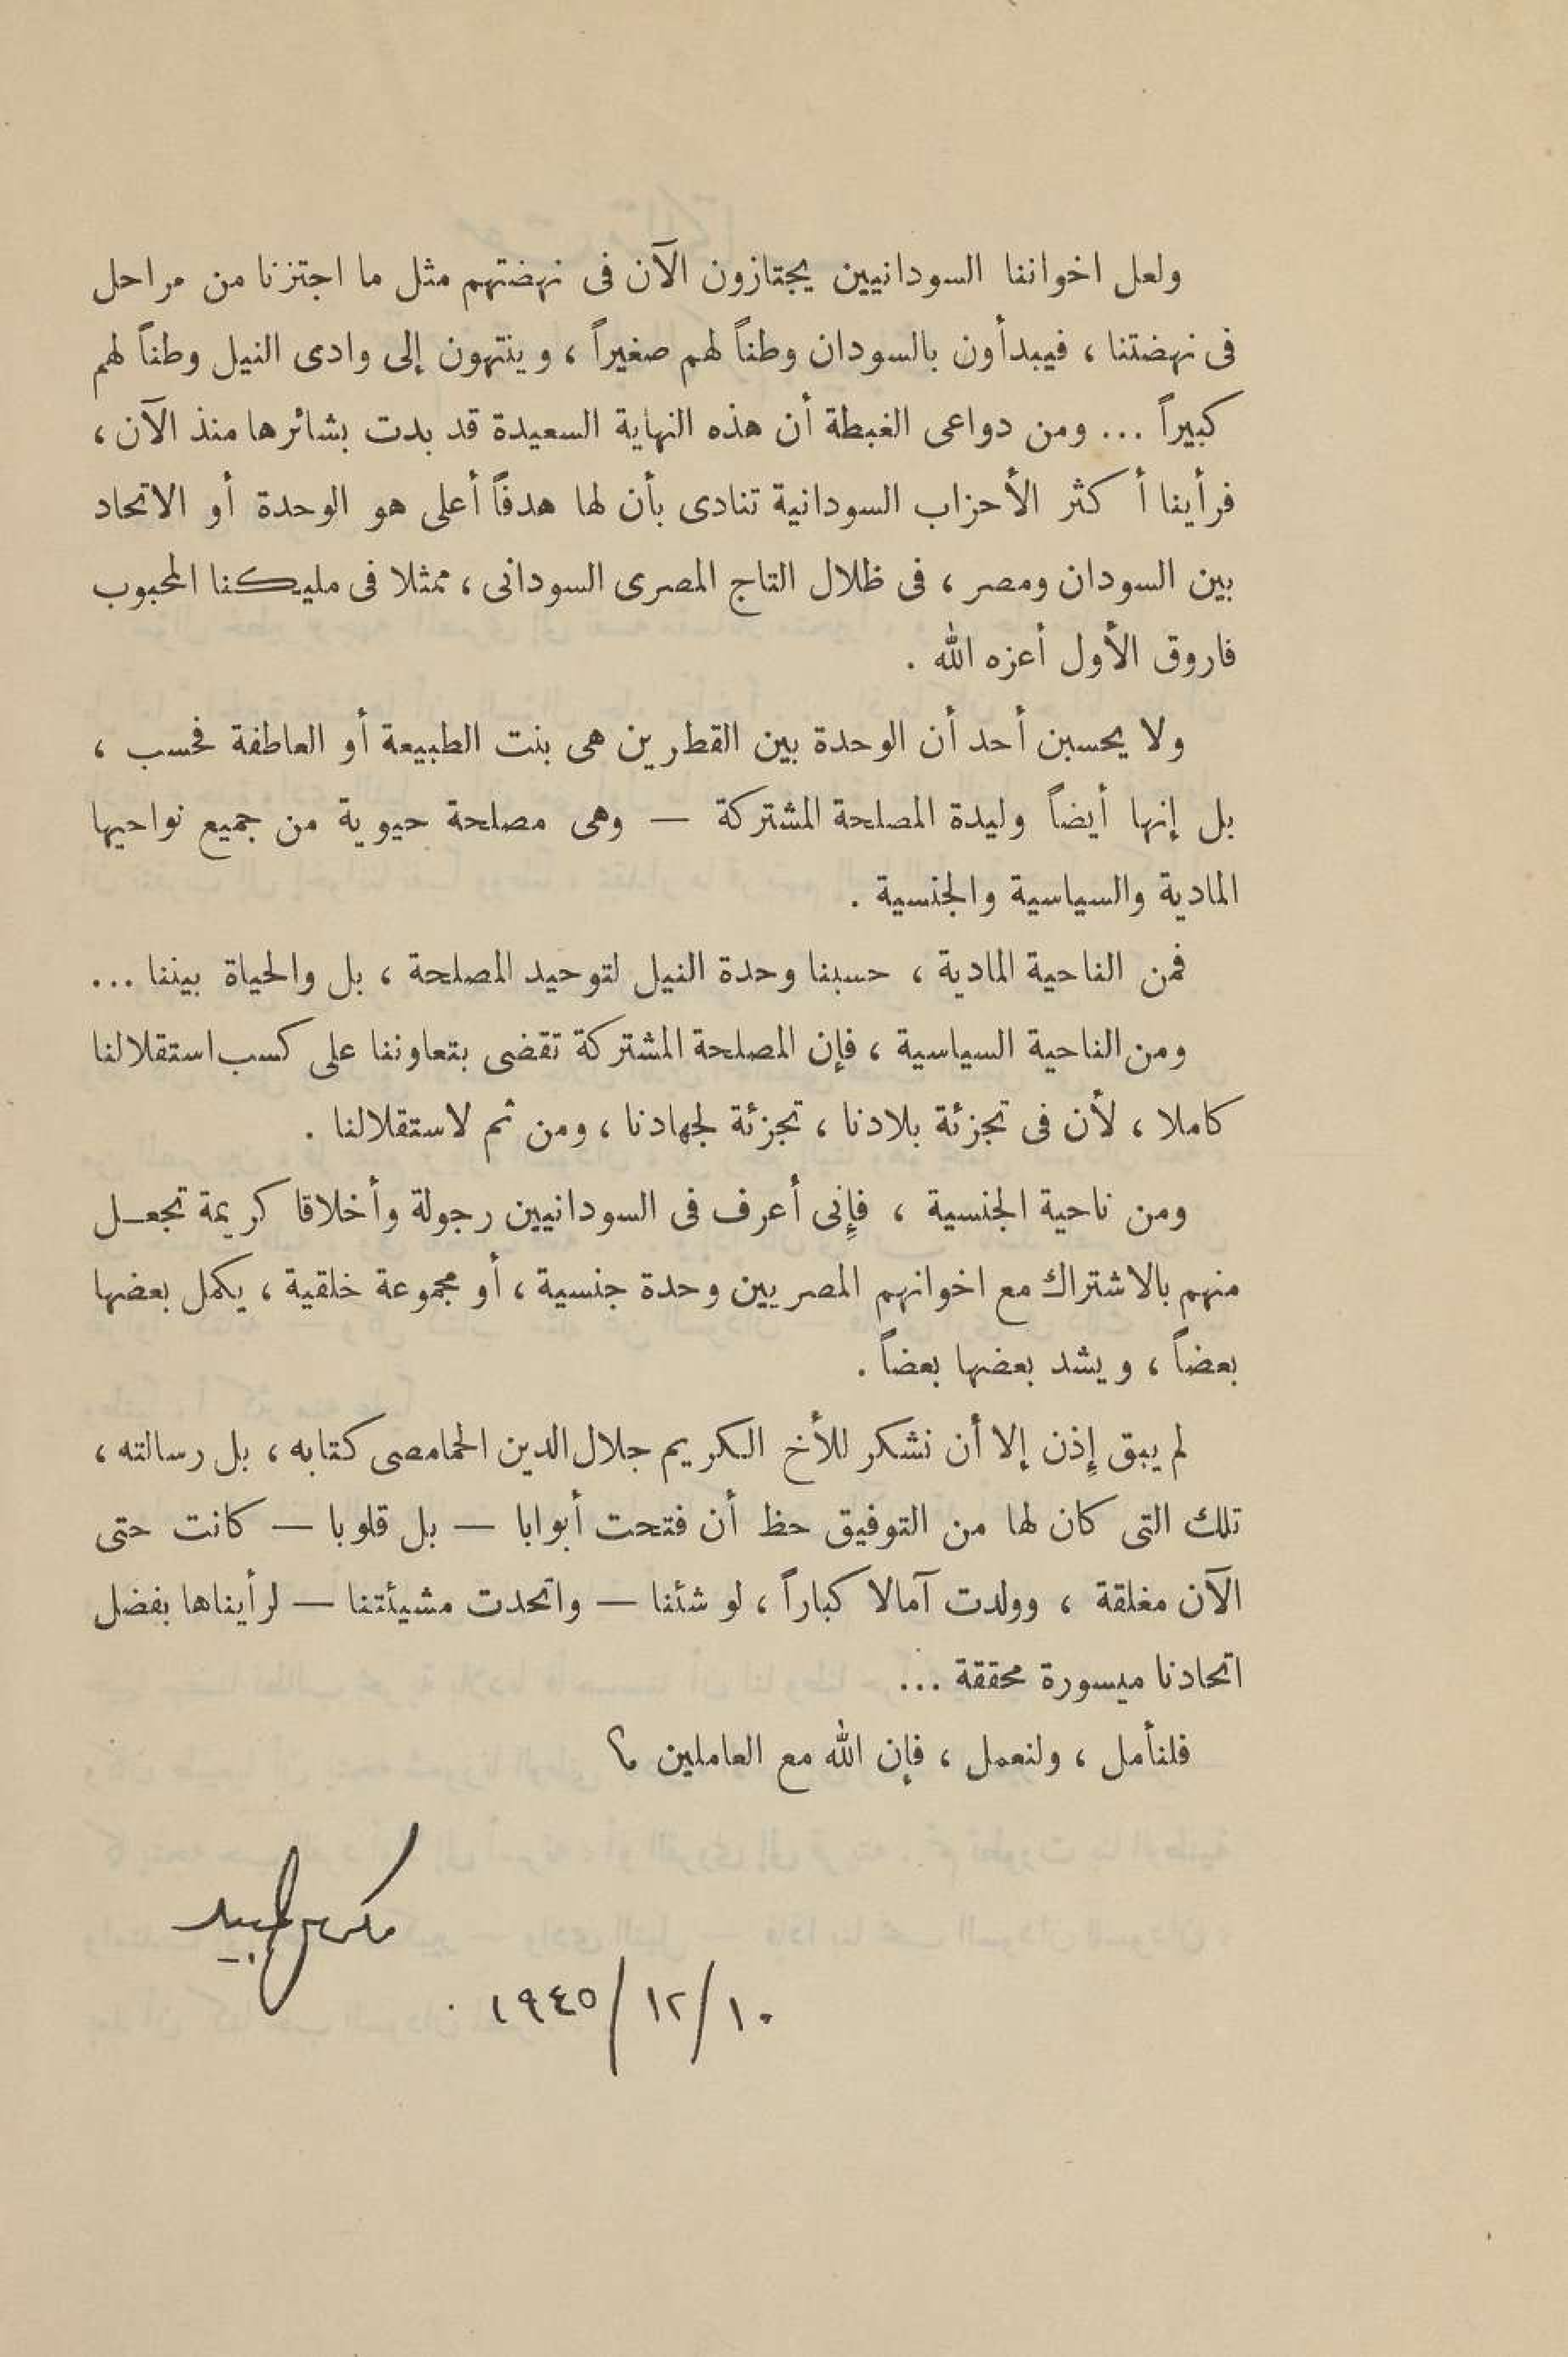 ولعل اخواننا السودانيين يجتازون الآن فى نهضتهم مثل ما اجتزنا من مراحل
فى نهضتنا ، فيبدأون بالسودان وطناً لهم صغيراً ، وينتهون إلى وادى النيل وطناً لهم
كبيراً ... ومن دواعى الغبطة أن هذه النهاية السعيدة قد بدت بشائرها منذ الآن ،
فرأينا أكثر الأحزاب السودانية تنادى بأن لها هدفاً أعلى هو الوحدة أو الاتحاد
بين السودان ومصر ، فى ظلال التاج المصرى السودانى ، ممثلا فى مليكنا المحبوب
فاروق الأول أعزه الله .
ولا يحسبن أحد أن الوحدة بين القطرين هى بنت الطبيعة أو العاطفة فحسب ،
بل إنها أيضاً وليدة المصلحة المشتركة — وهى مصلحة حيوية من جميع نواحيها
المادية والسياسية والجنسية .
فمن الناحية المادية ، حسبنا وحدة النيل لتوحيد المصلحة ، بل والحياة بيننا ...
ومن الناحية السياسية ، فإن المصلحة المشتركة تقضى بتعاوننا على كسب استقلالنا
كاملا ، لأن فى تجزئة بلادنا ، تجزئة لجهادنا ، ومن ثم لاستقلالنا .
ومن ناحية الجنسية ، فإِنى أعرف فى السودانيين رجولة وأخلاقا كريمة تجعـل
منهم بالاشتراك مع اخوانهم المصريين وحدة جنسية ، أو مجموعة خلقية ، يكمل بعضها
بعضاً ، ويشد بعضها بعضاً .
لم يبق إِذن إلا أن نشكر للأخ الكريم جلال الدين الحمامصى كتابه ، بل رسالته ،
تلك التى كان لها من التوفيق حظ أن فتحت أبوابا — بل قلوبا — كانت حتى
الآن مغلقة ، وولدت آمالا كباراً ، لو شئنا — واتحدت مشيئتنا — لرأيناها بفضل
اتحادنا ميسورة محققة ...
فلنأمل ، ولنعمل ، فإن الله مع العاملين ؟
مكرم عبيد
١٠/١٢/١٩٤٥